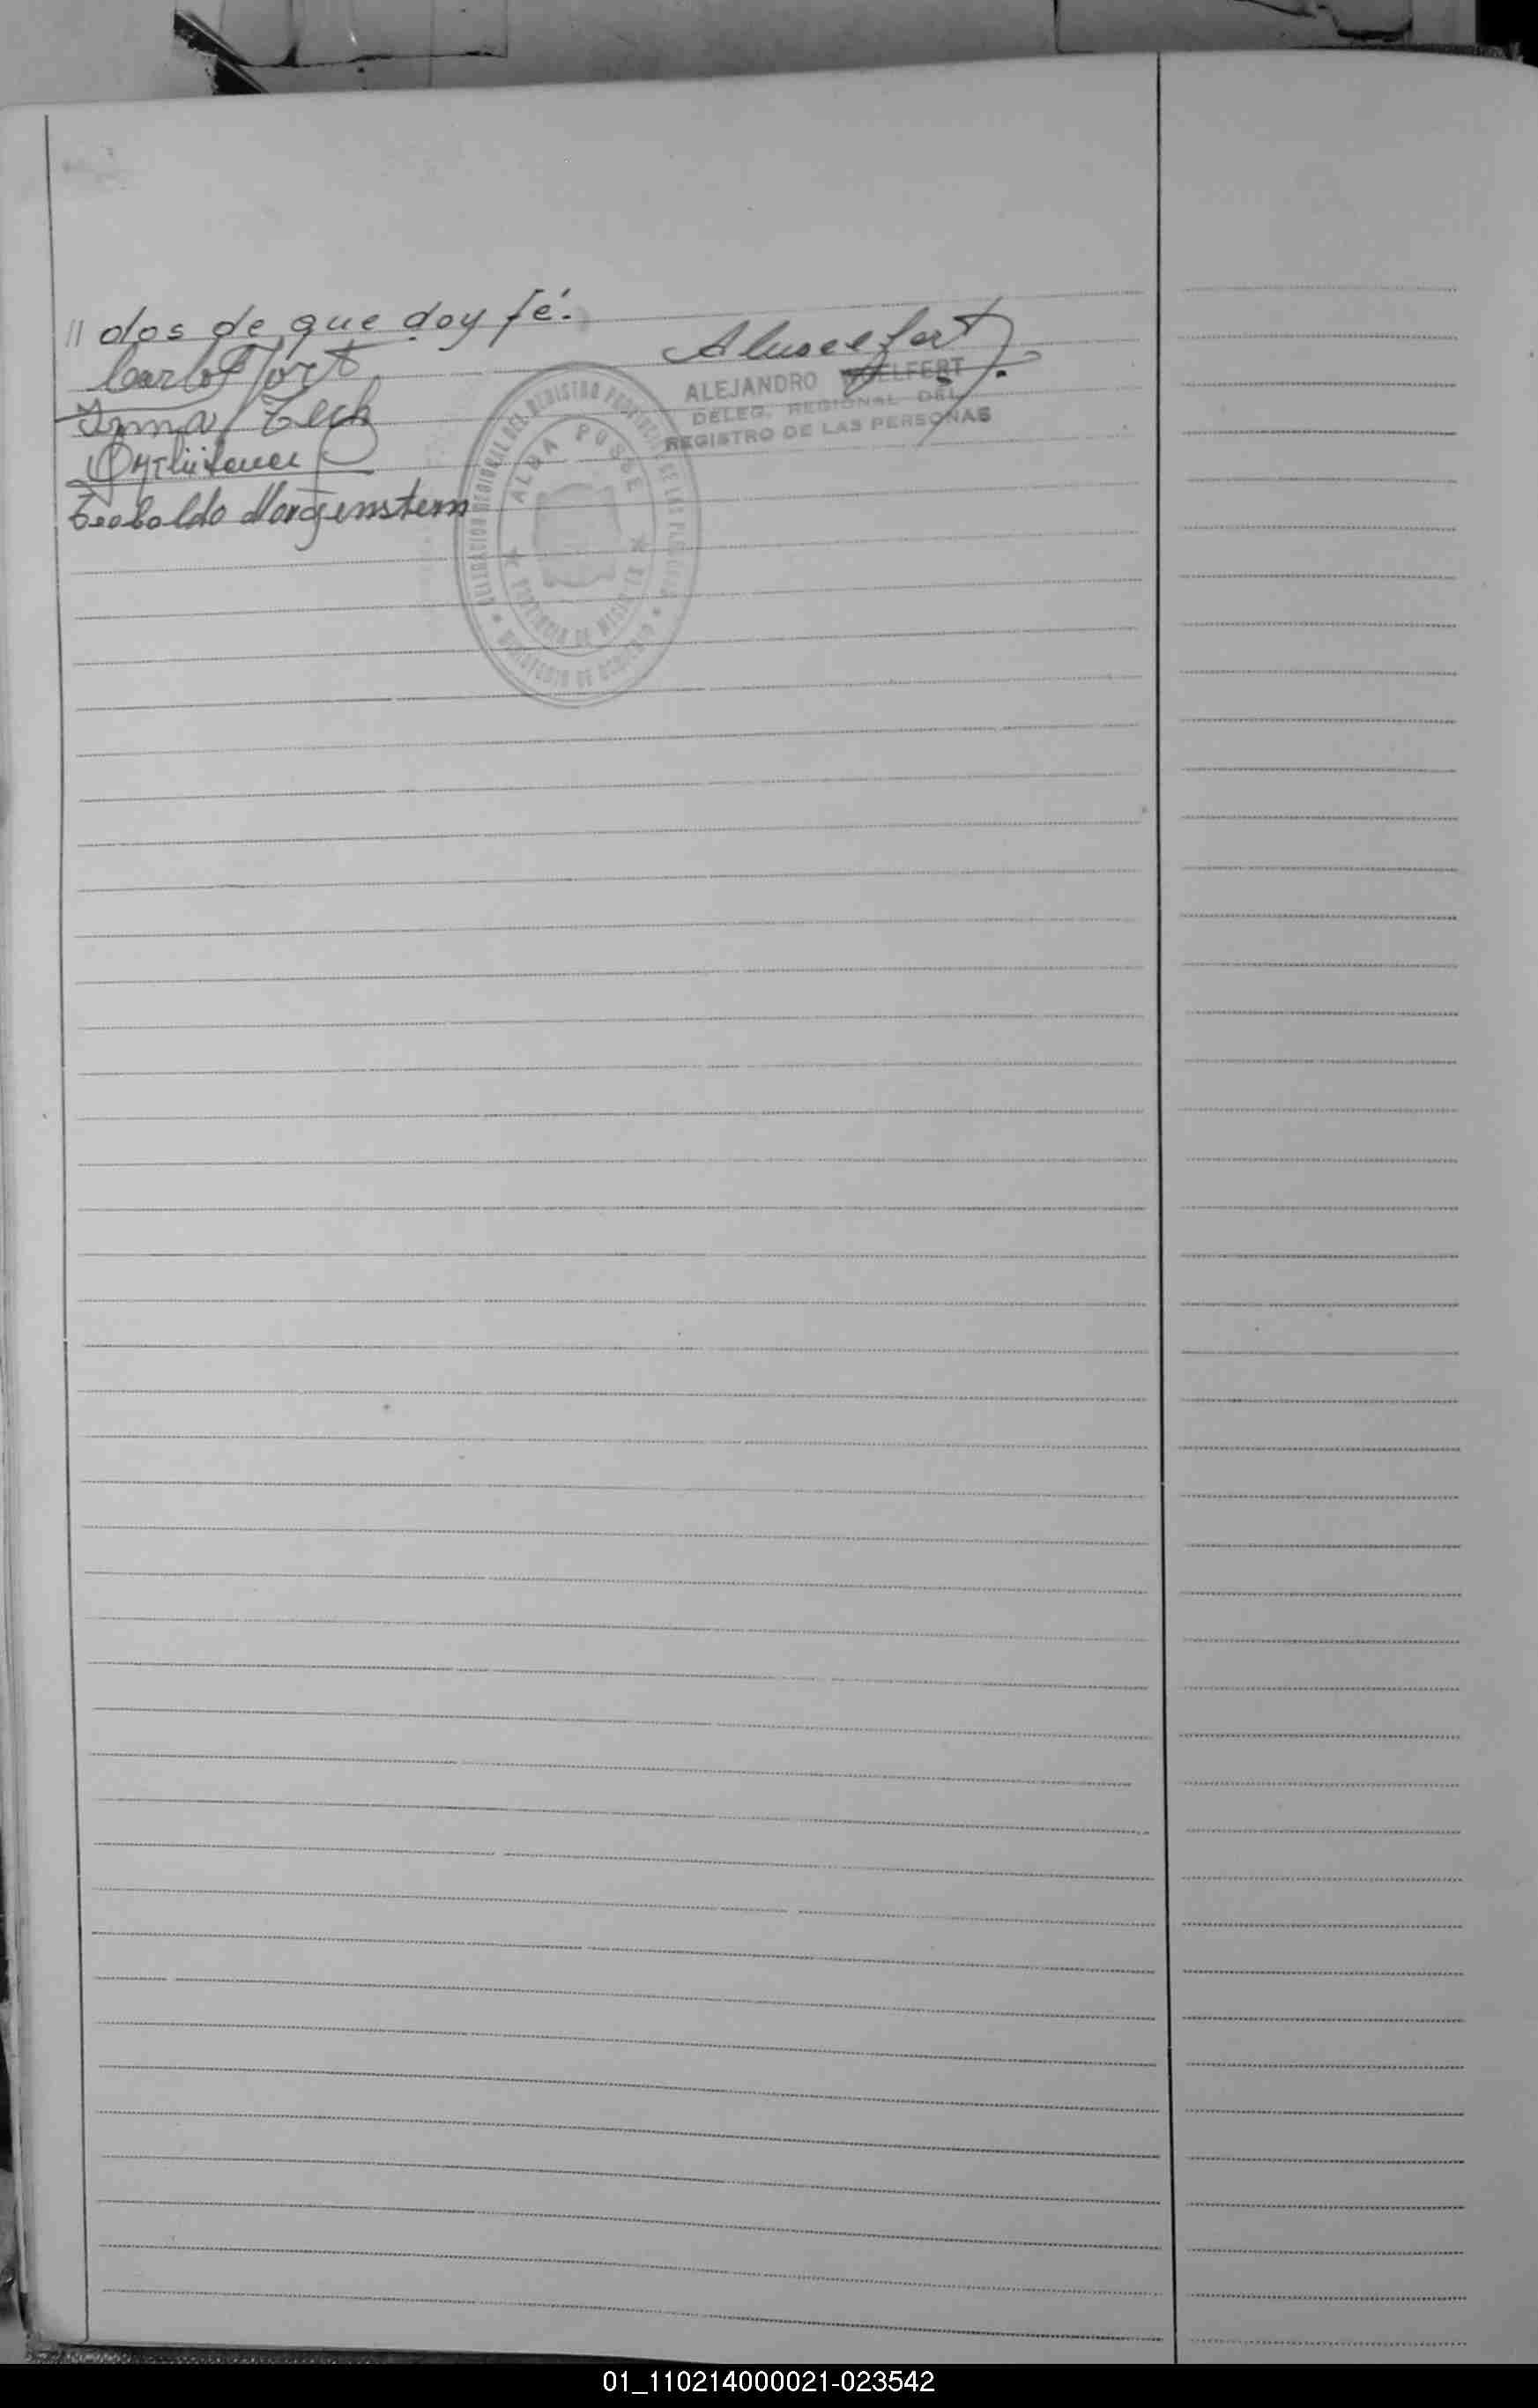 // dos de que doy fé.
Carlos Hort
Irma Tech
Teobaldo Morgenstern
ALEJANDRO WOELFERT
DELEG. REGIONAL DEL
REGISTRO DE LAS PERSONAS
DELEGACION REGIONAL DEL REGISTRO PROVINCIAL DE LAS PERSONAS
ALBA POSSE
PROVINCIA DE MISIONES
MINISTERIO DE GOBIERNO
01_110214000021-023542